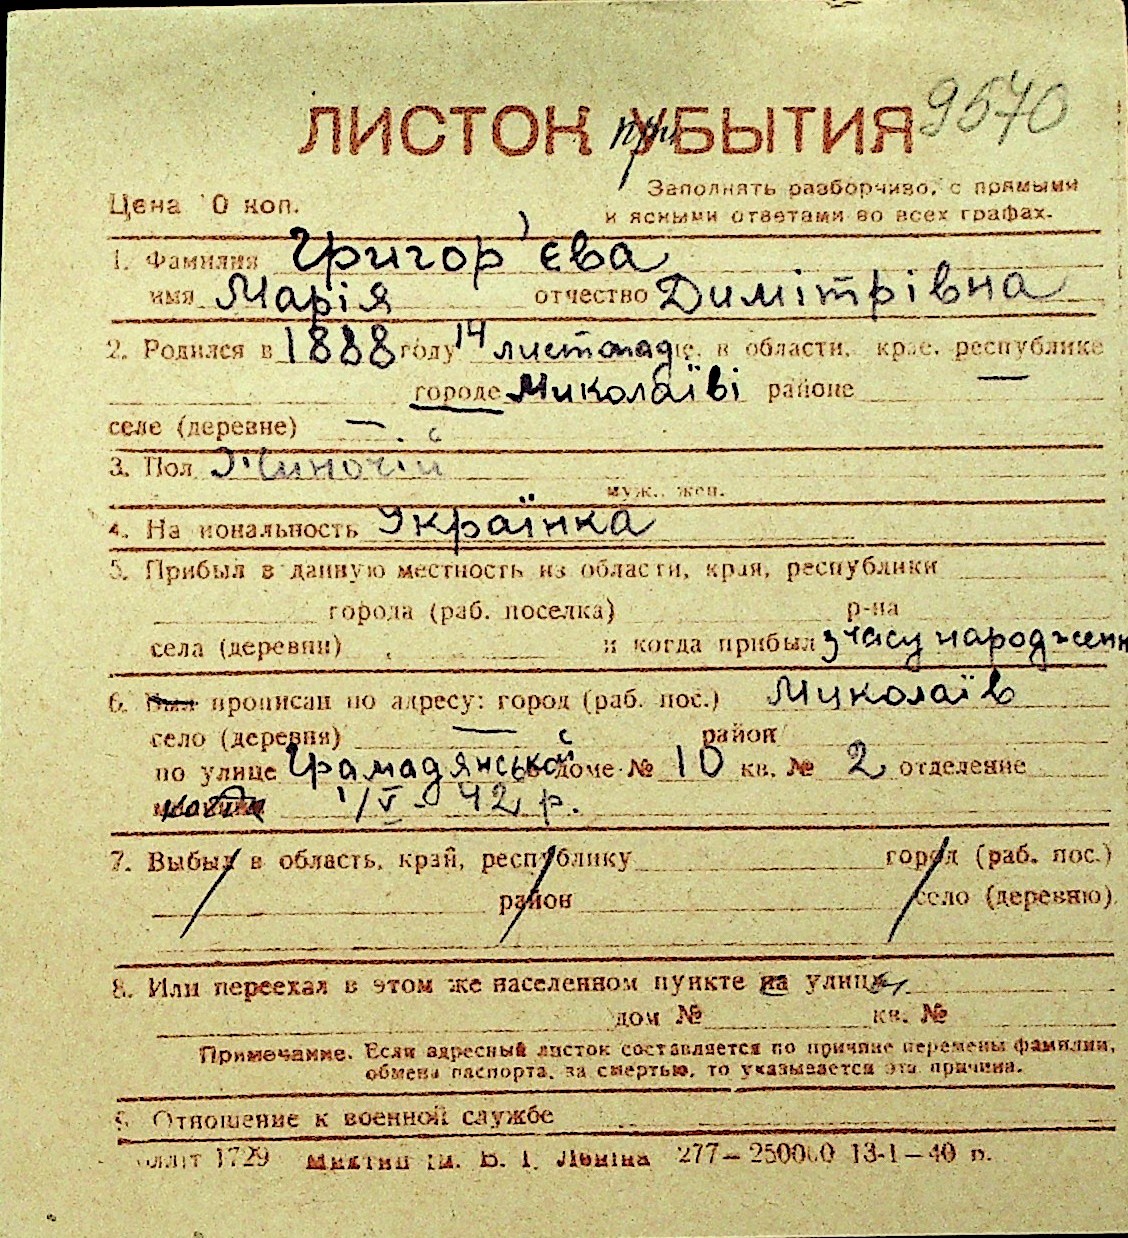 ЛИСТОК при УБЫТИЯ 9570
Цена 10 коп.
Заполнять разборчиво, с прямыми
и ясными ответами во всех графах.
1. Фамилия Григор'єва
имя Марія отчество Димітрівна
2. Родился в 1888 году 14 листопаде, в области, крае, республике
городе Миколаїві районе —
селе (деревне) —
3. Пол Жиночій
муж., жен.
4. Национальность Українка
5. Прибыл в данную местность из области, края, республики
города (раб. поселка) р-на
села (деревни) и когда прибыл з часу народженн
6. Был прописан по адресу: город (раб. пос.) Миколаїв
село (деревня) — район
по улице Грамадянській в доме № 10 кв. № 2 отделение
1/V - 42 р.
7. Выбыл в область, край, республику город (раб. пос.)
район село (деревню)
8. Или переехал в этом же населенном пункте на улицу
дом № кв. №
Примечание. Если адресный листок составляется по причине перемены фамилии,
обмена паспорта, за смертью, то указывается эта причина.
9. Отношение к военной службе
1729 ім. В. І. Леніна 277—250000 13-I—40 р.